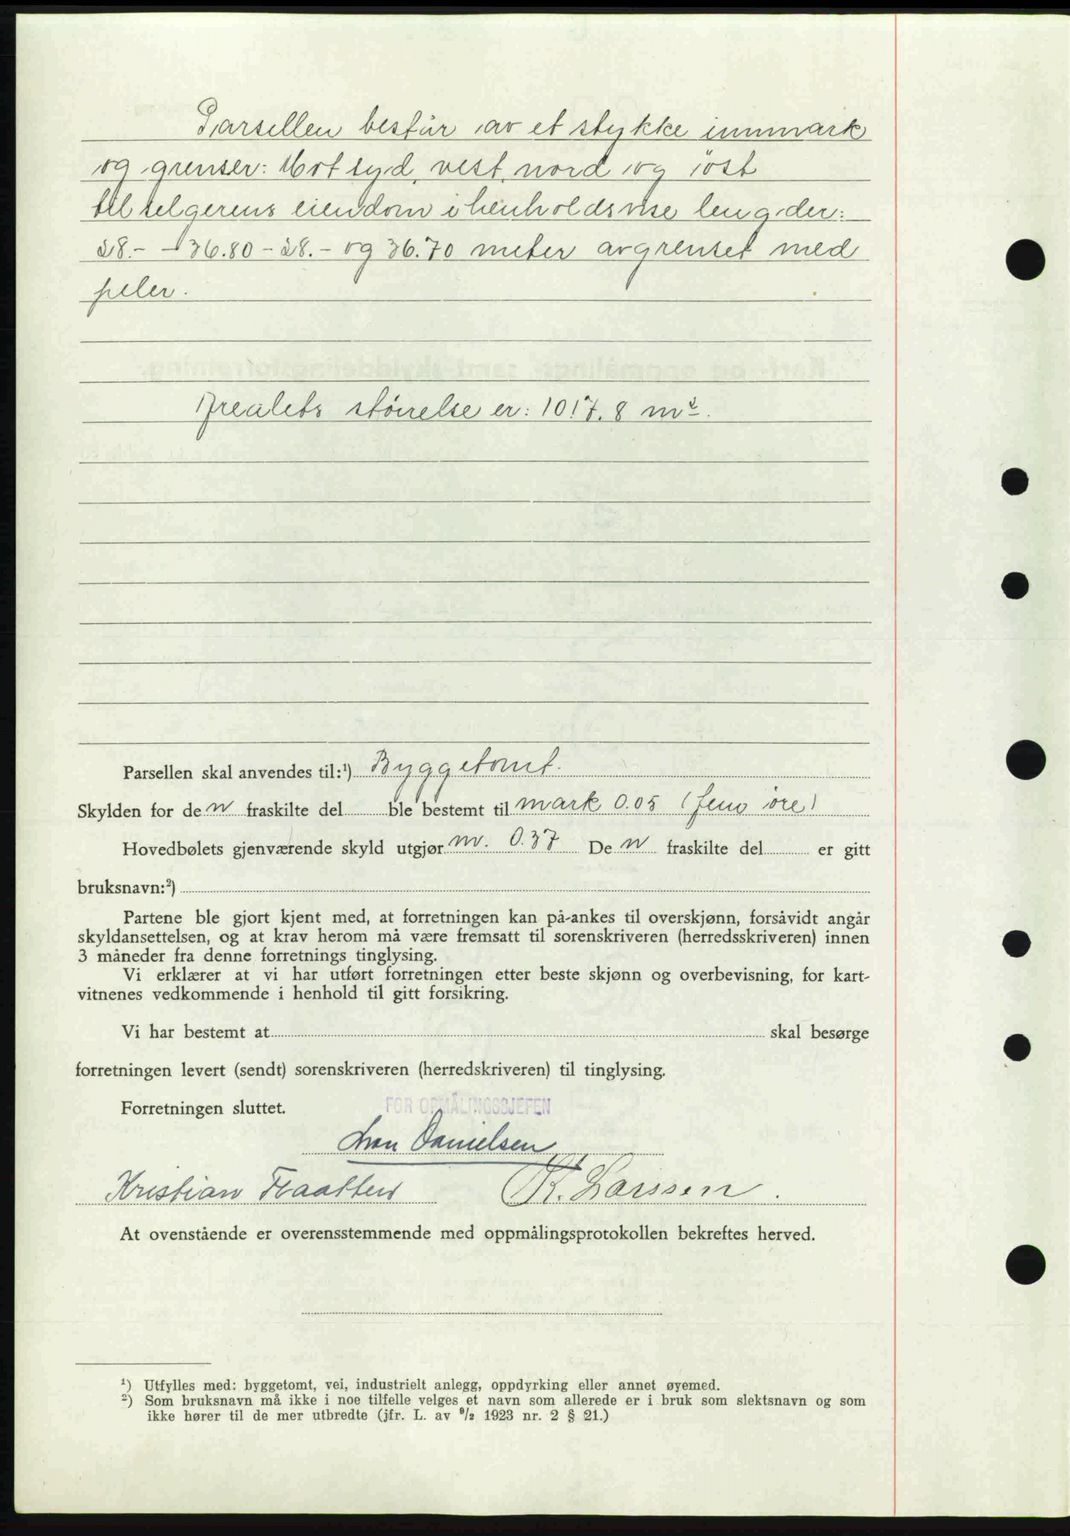 Parsellen består av et stykke innmark
og grenser: Mot syd, vest, nord og øst
til selgerens eiendom i henholdsvise lengder:
28.- - 36.80 - 28.- og 36.70 meter avgrenset med
peler.
Arealets størrelse er: 1017.8 m²
Parsellen skal anvendes til:¹) Byggetomt.
Skylden for de n fraskilte del ble bestemt til mark 0.05 (fem øre)
Hovedbølets gjenværende skyld utgjør m. 0.37 De n fraskilte del er gitt
bruksnavn:²)
Partene ble gjort kjent med, at forretningen kan på-ankes til overskjønn, forsåvidt angår
skyldansettelsen, og at krav herom må være fremsatt til sorenskriveren (herredsskriveren) innen
3 måneder fra denne forretnings tinglysing.
Vi erklærer at vi har utført forretningen etter beste skjønn og overbevisning, for kart-
vitnenes vedkommende i henhold til gitt forsikring.
Vi har bestemt at skal besørge
forretningen levert (sendt) sorenskriveren (herredskriveren) til tinglysing.
Forretningen sluttet.
FOR OPMÅLINGSSJEFEN
Danielsen
Kristian Traatten K. Larssen.
At ovenstående er overensstemmende med oppmålingsprotokollen bekreftes herved.
¹) Utfylles med: byggetomt, vei, industrielt anlegg, oppdyrking eller annet øyemed.
²) Som bruksnavn må ikke i noe tilfelle velges et navn som allerede er i bruk som slektsnavn og som
ikke hører til de mer utbredte (jfr. L. av ⁹/₂ 1923 nr. 2 § 21.)